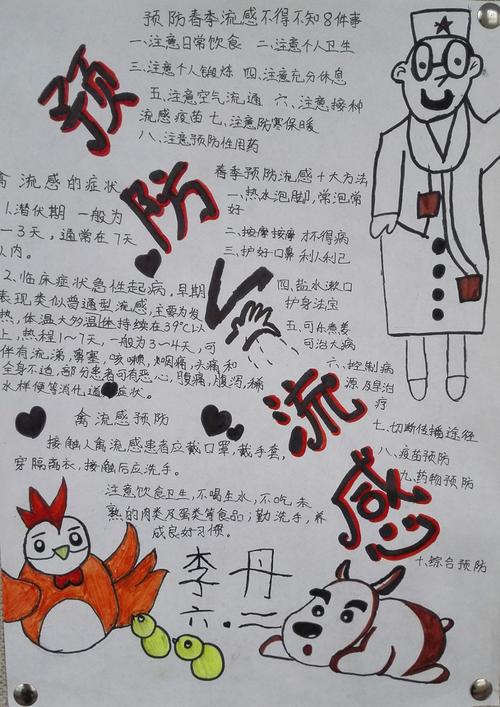 预防春季流感不得不知8件事
一、注意日常饮食 二、注意个人卫生
三、注意个人锻炼 四、注意充分休息
五、注意空气流通 六、注意接种
流感疫苗 七、注意防寒保暖
八、注意预防性用药
预
防
流
感
春季预防流感十大方法
一、热水泡脚,常泡常
好
二、按摩按摩 不得病
三、护好口鼻 利人利己
四、盐水漱口
护身法宝
五、可
可治大病
六、控制病
源 及早治
疗
七、切断传播途径
八、疫苗预防
九、药物预防
十、综合预防
禽流感的症状
1.潜伏期 一般为
1—3天,通常在7天
以内。
2.临床症状急性起病,早期
表现类似普通型流感,主要为发
热,体温大多温体持续在39℃以
上,热程1~7天,一般为3~4天,可
伴有流涕,鼻塞,咳嗽,咽痛,头痛和
全身不适,部分患者可有恶心,腹痛,腹泻,稀
水样便等消化道症状。
禽流感预防
接触人禽流感患者应戴口罩,戴手套,
穿隔离衣,接触后应洗手。
注意饮食卫生,不喝生水,不吃未
熟的肉类及蛋类等食品;勤洗手,养
成良好习惯。
李丹
六.二